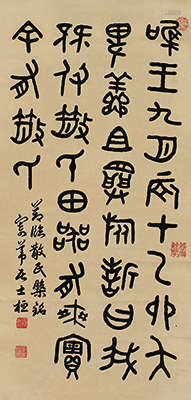 唯王九月辰才乙卯夨
卑鮮且𢍰旅誓曰我
既付散氏田器有爽實
余有散氏
臨散氏槃銘